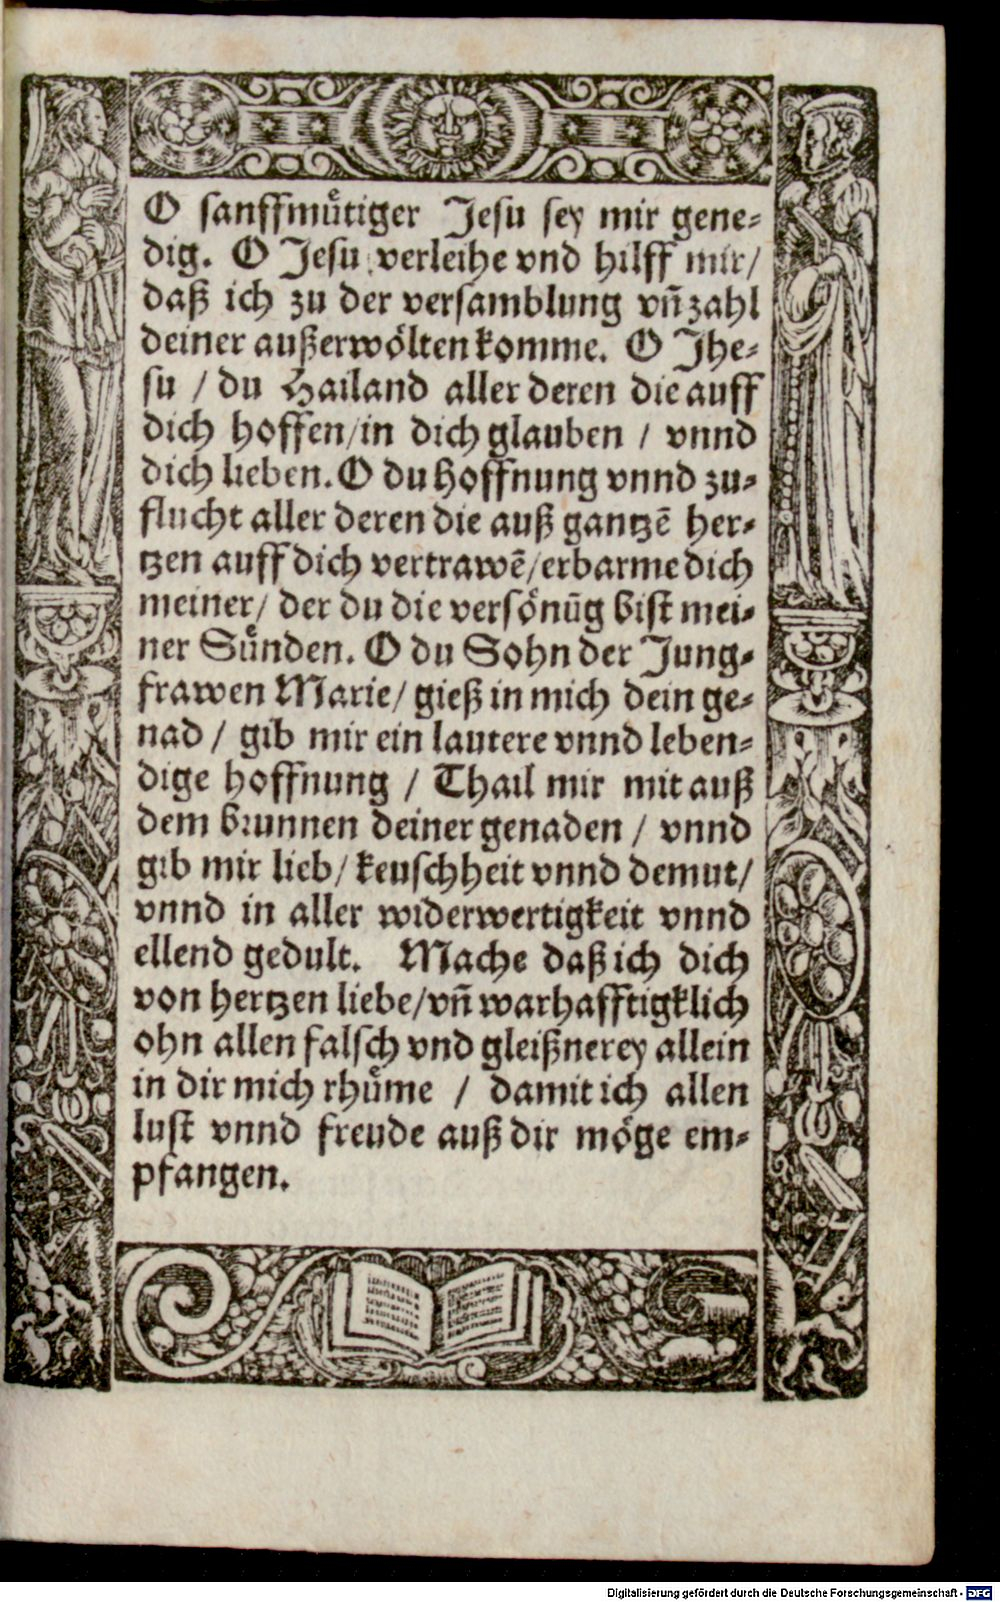 O sanffmuͤtiger Jesu sey mir gene⸗
dig. O Jesu verleihe vnd hilff mir/
daß ich zu der versamblung vñ zahl
deiner außerwoͤlten komme. O Jhe⸗
su / du Hailand aller deren die auff
dich hoffen/in dich glauben / vnnd
dich lieben. O du Hoffnung vnnd zu⸗
flucht aller deren die auß gantzẽ her⸗
tzen auff dich vertrawẽ/erbarme dich
meiner/ der du die versoͤnũg bist mei⸗
ner Suͤnden. O du Sohn der Jung⸗
frawen Marie/ gieß in mich dein ge⸗
nad / gib mir ein lautere vnnd leben⸗
dige hoffnung / Thail mir mit auß
dem brunnen deiner genaden / vnnd
gib mir lieb/ keuschheit vnnd demut/
vnnd in aller widerwertigkeit vnnd
ellend gedult. Mache daß ich dich
von hertzen liebe/vñ warhafftigklich
ohn allen falsch vnd gleißnerey allein
in dir mich rhuͤme / damit ich allen
lust vnnd freude auß dir moͤge em⸗
pfangen.
Digitalisierung gefördert durch die Deutsche Forschungsgemeinschaft - DFG